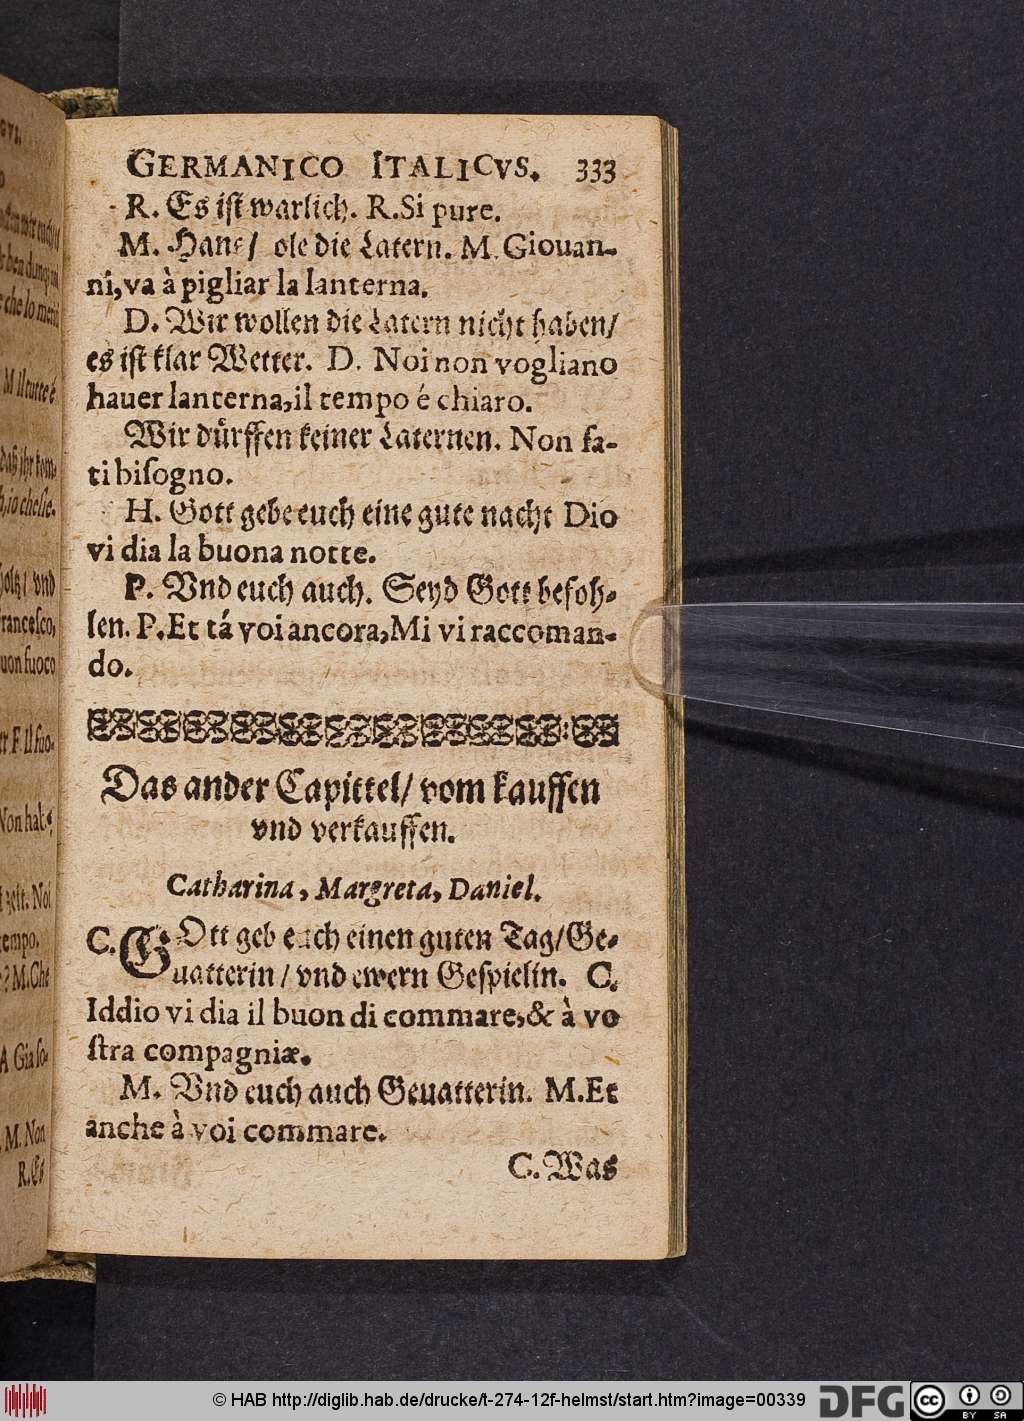 GERMANICO ITALICVS. 333
R. Es ist warlich. R. Si pure.
M. Hans/ ole die Latern. M. Giouan-
ni, va à pigliar la lanterna.
D. Wir wollen die Latern nicht haben/
es ist klar Wetter. D. Noi non vogliano
hauer lanterna, il tempo é chiaro.
Wir dürffen keiner Laternen. Non fa-
ti bisogno.
H. Gott gebe euch eine gute nacht Dio
vi dia la buona notte.
P. Vnd euch auch. Seyd Gott befoh-
len. P. Et tá voi ancora, Mi vi raccoman-
do.
Das ander Capittel/ vom kauffen
vnd verkauffen.
Catharina, Margreta, Daniel.
C. GOtt geb euch einen guten Tag/ Ge-
uatterin/ vnd ewern Gespielin. C.
Iddio vi dia il buon di commare, & à vo
stra compagniæ.
M. Vnd euch auch Geuatterin. M. Et
anche à voi commare.
C. Was
GVI.
M Il tutte é
daß ihr kom-
io che sie.
holtz/ vnd
rancesco,
uon fuoco
F. Il fuo-
Non hab-
zeit. Noi
tempo.
? M. Che
A Gia so-
M. Non
R. Es
© HAB http://diglib.hab.de/drucke/t-274-12f-helmst/start.htm?image=00339
DFG
cc
BY SA